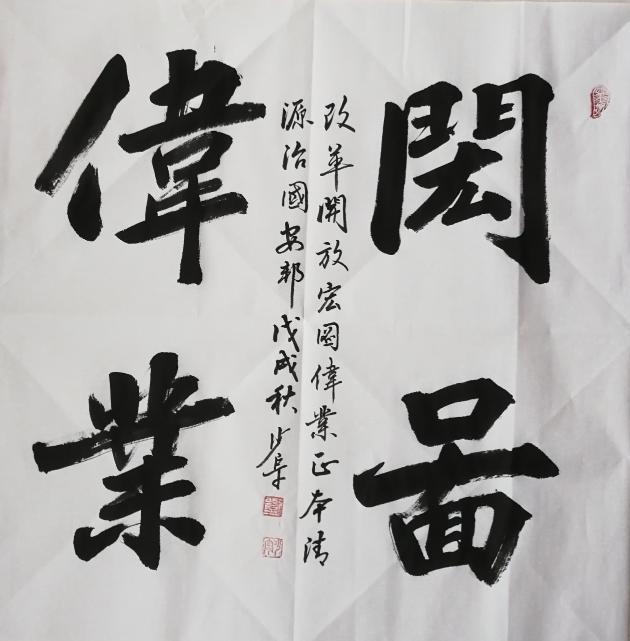 閎啚
改革開放宏图偉業正本清
源治國安邦戊戌秋
偉業